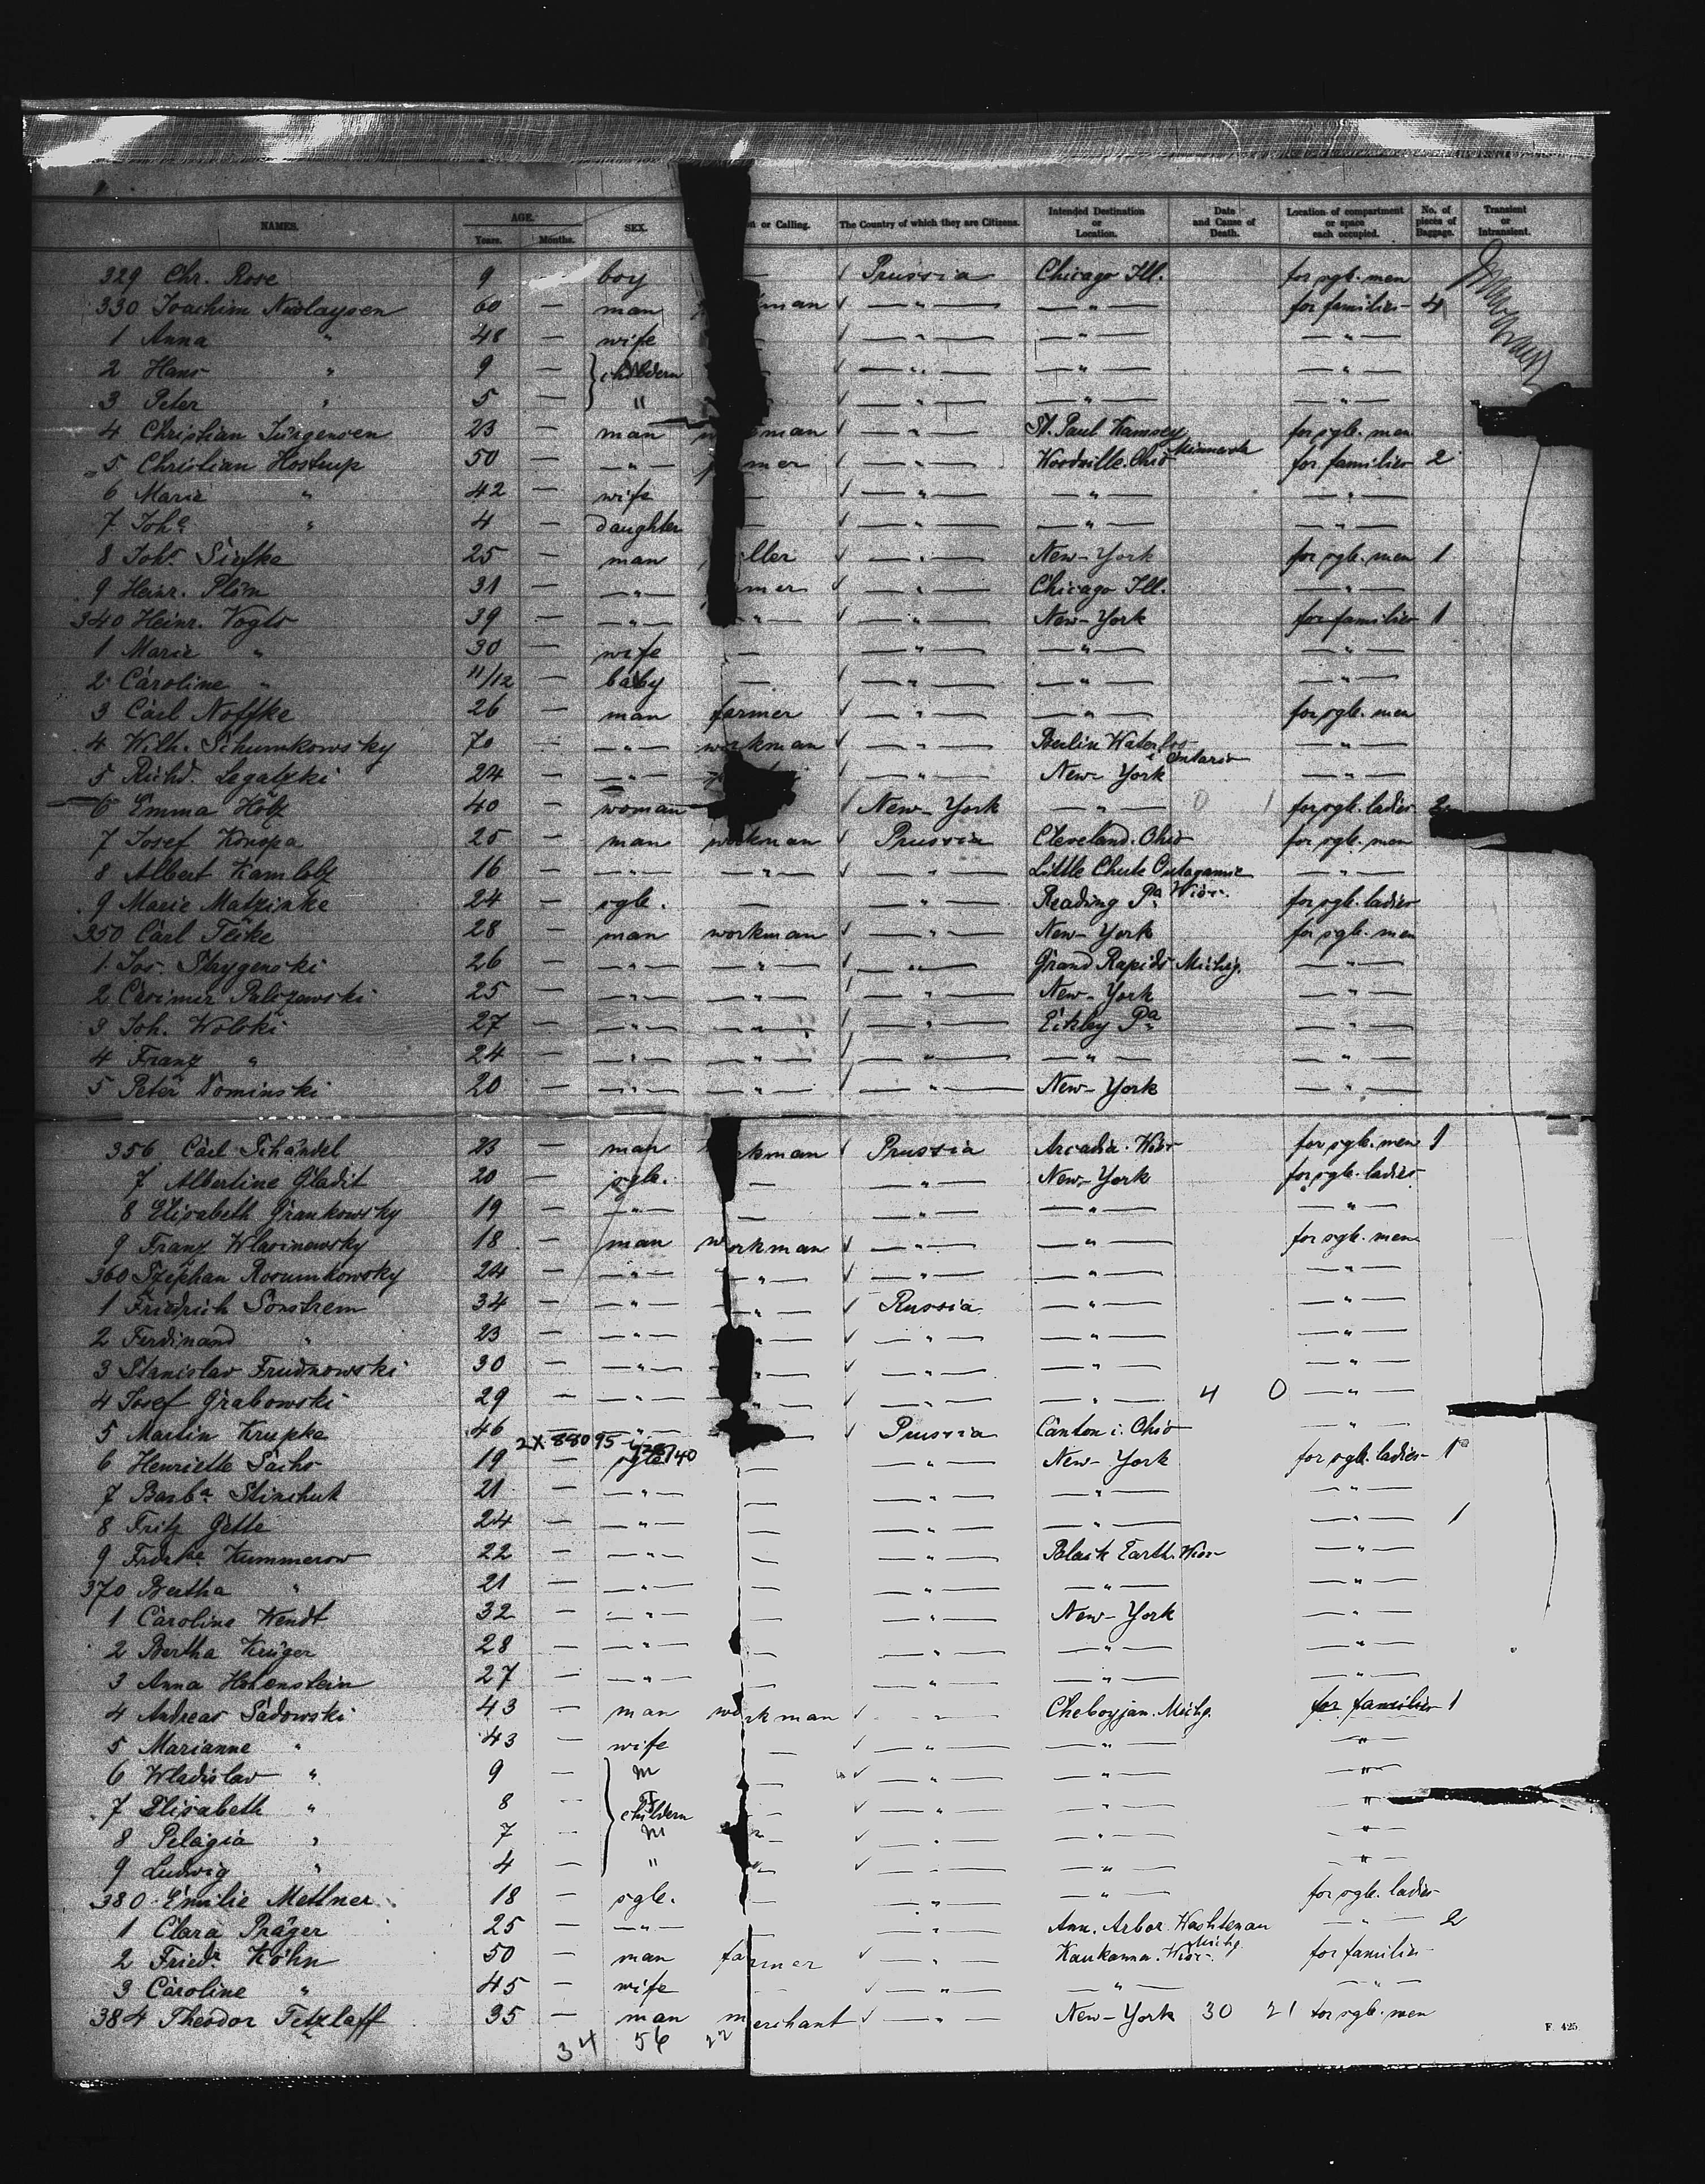 NAMES. AGE. Years. Months. SEX. or Calling. The Country of which they are Citizens. Intended Destination or Location. Date and Cause of Death. Location of compartment or space each occupied. No. of pieces of Baggage. Transient or Intransient.
329 Chr. Rose 9 — boy — ✓ Prussia Chicago Ill. for sgle. men
330 Joachim Nicolaysen 60 — man man ✓ — " — — " — for families 4
1 Anna " 48 — wife ✓ — " — — " — — " —
2 Hans " 9 — children ✓ — " — — " — — " —
3 Peter " 5 — " ✓ — " — — " — — " —
4 Christian Jürgensen 23 — man man ✓ — " — St. Paul Ramsey Minnesota for sgle. men
5 Christian Hostrup 50 — — " — mer ✓ — " — Woodville Ohio for families 2
6 Marie " 42 — wife — ✓ — " — — " — — " —
7 Joh. " 4 — daughter — ✓ — " — — " — — " —
8 Joh. Siefke 25 — man ller ✓ — " — New-York for sgle. men 1
9 Heinr. Plön 31 — — " — mer ✓ — " — Chicago Ill. — " —
340 Heinr. Vogts 39 — — " — " — ✓ — " — New-York for families 1
1 Marie " 30 — wife — ✓ — " — — " — — " —
2 Caroline " 11/12 — baby — ✓ — " — — " — — " —
3 Carl Noffke 26 — man farmer ✓ — " — — " — for sgle. men
4 Wilh. Schumkowsky 70 — — " — workman ✓ — " — Berlin Waterloo Ontario — " —
5 Richd. Legatzki 24 — — " — ✓ — " — New-York — " —
6 Emma Hötz 40 — woman ✓ New-York — " — 0 1 for sgle. ladies
7 Josef Konopa 25 — man workman ✓ Prussia Cleveland. Ohio for sgle. men
8 Albert Kamlotz 16 — — " — — " — ✓ — " — Little Chute Outagamie Wisc. — " —
9 Marie Matzinke 24 — sgle. — — " — Reading Pa for sgle. ladies
350 Carl Teike 28 — man workman ✓ — " — New-York for sgle. men
1 Jos. Strygenski 26 — — " — — " — ✓ — " — Grand Rapids Michig. — " —
2 Casimir Palczewski 25 — — " — — " — ✓ — " — New-York — " —
3 Joh. Woloki 27 — — " — — " — ✓ — " — Eckley Pa — " —
4 Franz " 24 — — " — — " — ✓ — " — — " — — " —
5 Peter Dominski 20 — — " — — " — ✓ — " — New-York — " —
356 Carl Schändel 23 — man kman ✓ Prussia Arcadia. Wisc for sgle. men 1
7 Albertine Gladit 20 — sgle. — — " — New-York for sgle. ladies
8 Elisabeth Grankowsky 19 — — " — — — " — — " — — " —
9 Franz Wlasinewsky 18 — man workman ✓ — " — — " — for sgle. men
360 Szephan Rosumkowsky 24 — — " — — " — ✓ — " — — " — — " —
1 Friedrich Sonstrem 34 — — " — — " — ✓ Russia — " — — " —
2 Ferdinand " 23 — — " — " — ✓ — " — — " — — " —
3 Stanislav Frudnowski 30 — — " — " — ✓ — " — — " — — " —
4 Josef Grabowski 29 — — " — " — ✓ — " — — " — 4 0 — " —
5 Martin Krupke 46 — " — ✓ Prussia Canton i. Ohio — " —
6 Henriette Sachs 19 — sgle — — " — New-York for sgle. ladies 1
7 Barba. Stinchut 21 — — " — — — " — — " — — " —
8 Fritz Gette 24 — — " — — — " — — " — — " — 1
9 Kummerow 22 — — " — — — " — Black Earth. Wisc — " —
370 Bertha " 21 — — " — — — " — — " — — " —
1 Caroline Wendt 32 — — " — — — " — New-York — " —
2 Bertha Krüger 28 — — " — — — " — — " — — " —
3 Anna Hohenstein 27 — — " — — — " — — " — — " —
4 Andreas Sadowski 43 — man workman ✓ — " — Cheboyjan. Michg. for families 1
5 Marianne " 43 — wife — ✓ — " — — " — — " —
6 Wladislav " 9 — M — ✓ — " — — " — — " —
7 Elisabeth " 8 — F children — ✓ — " — — " — — " —
8 Pelagia " 7 — M — ✓ — " — — " — — " —
9 Ludwig " 4 — " ✓ — " — — " — — " —
380 Emilie Mettner 18 — sgle. — — " — — " — for sgle. ladies
1 Clara Präger 25 — — " — — " — Ann. Arbor Washtenau Michg. — " — 2
2 Friedr. Köhn 50 — man farmer ✓ — " — Kaukanna. Wisc. for families
3 Caroline " 45 — wife — ✓ — " — — " — — " —
384 Theodor Tetzlaff 35 — man merchant ✓ — " — New-York 30 21 for sgle. men
34 56 22
F. 425